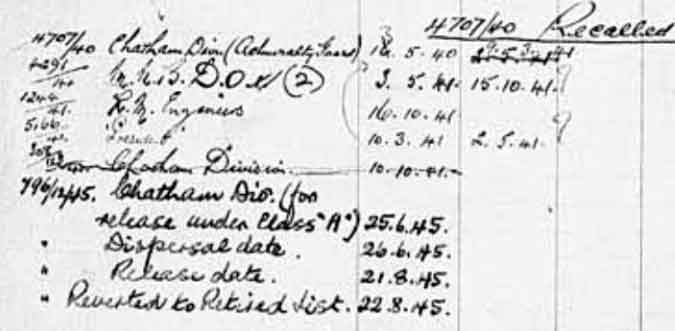 4707/40 Recalled
4707/40 Chatham Divn. (Admalty. Guard) 16. 5. 40
4291/40 D.O.N (2) 3. 5. 41. 15.10.41.
1244/41. R.M. Engineers 16.10.41
"President" 10.3.41 2.5.41.
Chatham Division. 10.10.41.
796/12/45. Chatham Div. (for
release under Class "A") 25.6.45.
" Dispersal date. 26.6.45.
" Release date. 21.8.45.
" Reverted to Retired List. 22.8.45.